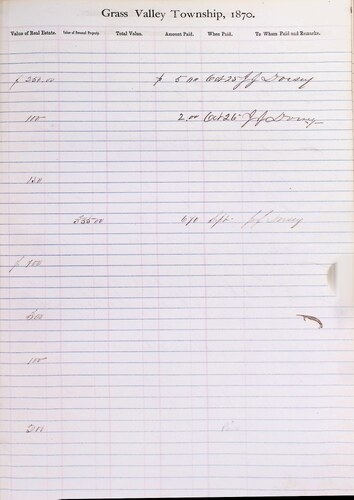 Grass Valley Township, 1870.
Value of Real Estate. Value of Personal Property. Total Value. Amount Paid. When Paid. To Whom Paid and Remarks.
$ 250.00 $ 5.00 Oct 25 J J Dorsey
100 2.00 Oct 25 J J Dorsey
150
555 00 Sept J J Dorsey
$ 400
500
100
200